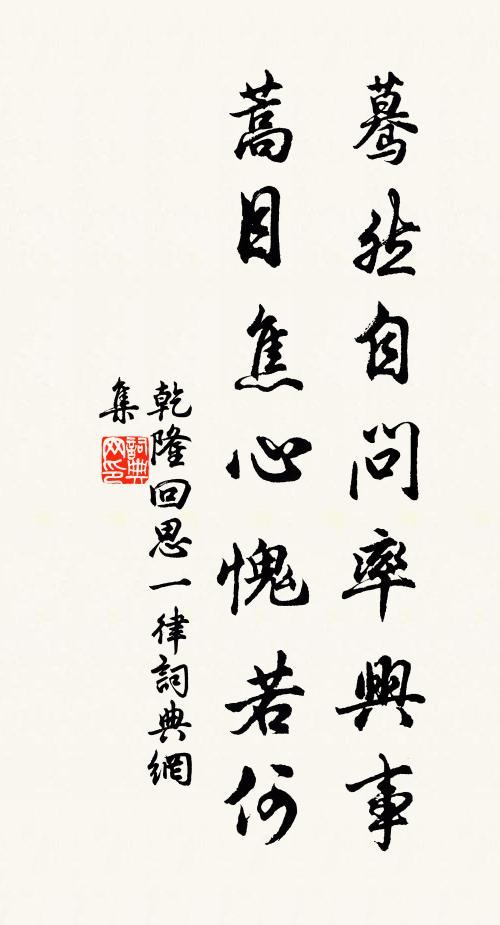 驀然自問率興事
蒿目焦心愧若何
乾隆回思一律詞典網
集
詞典
网印